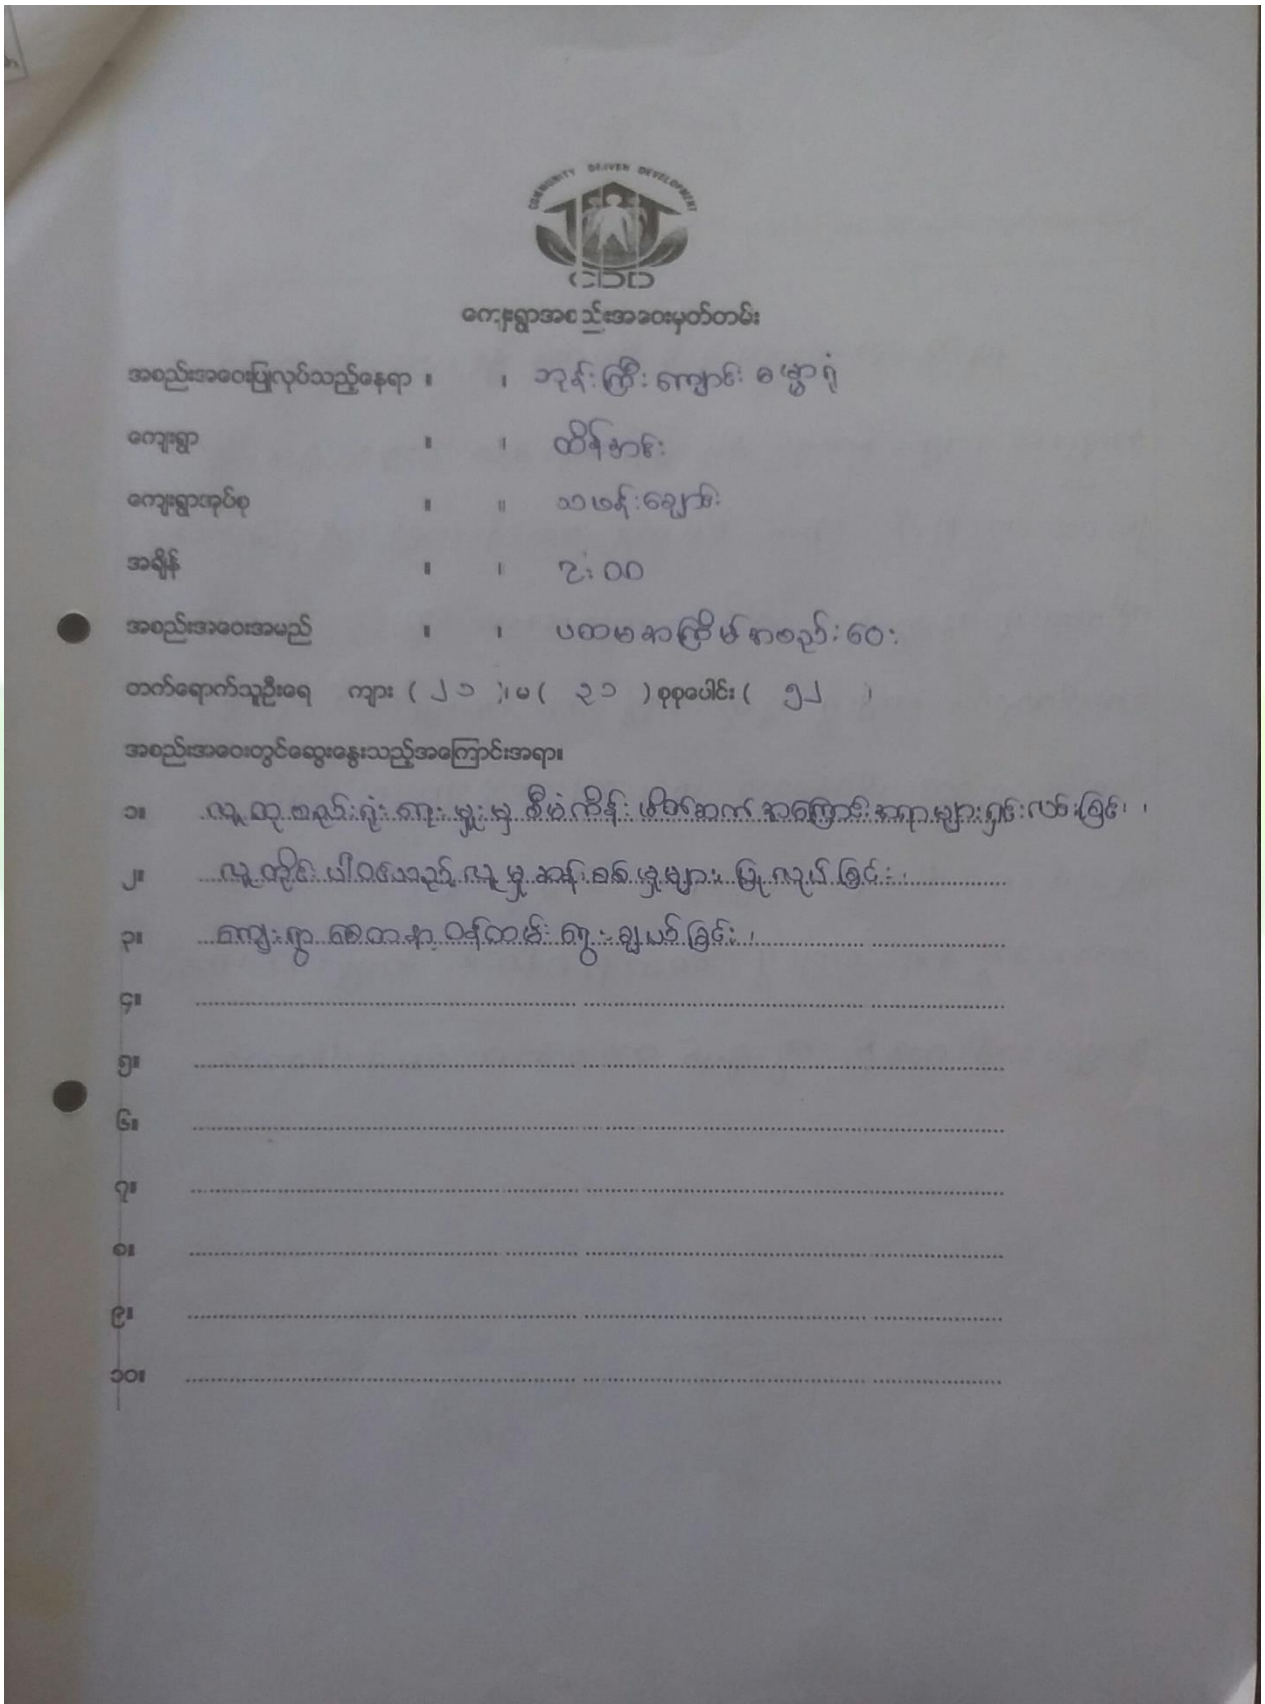 COMMUNITY DRIVEN DEVELOPMENT
CDD
ကျေးရွာအစည်းအဝေးမှတ်တမ်း
အစည်းအဝေးပြုလုပ်သည့်နေရာ ။ ၊ ဘုန်းကြီးကျောင်း ဓမ္မာရုံ
ကျေးရွာ ။ ၊ ထိန်တင်း
ကျေးရွာအုပ်စု ။ ။ သဖန်းချောင်း
အချိန် ။ ၊ ၃:၀၀
အစည်းအဝေးအမည် ။ ၊ ပထမအကြိမ်အစည်းဝေး
တက်ရောက်သူဦးရေ ကျား ( ၂၁ )၊ မ ( ၃၁ ) စုစုပေါင်း ( ၅၂ )
အစည်းအဝေးတွင်ဆွေးနွေးသည့်အကြောင်းအရာ။
၁။ လူထုစည်းရုံးရေးမှူးမှ စီမံကိန်းမိတ်ဆက်အကြောင်းအရာများရှင်းလင်းခြင်း၊
၂။ လူတိုင်းပါဝင်သည့်လူမှုဆန်းစစ်မှုများပြုလုပ်ခြင်း၊
၃။ ကျေးရွာစေတနာ့ဝန်ထမ်းရွေးချယ်ခြင်း၊
၄။
၅။
၆။
၇။
၈။
၉။
၁၀။